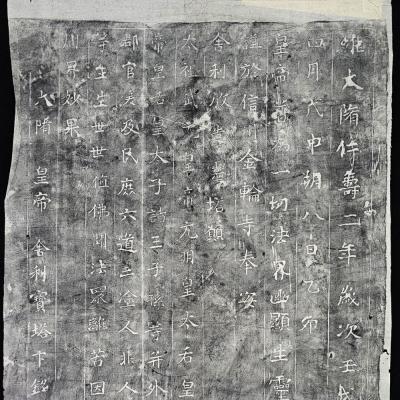 維大隋仁壽二年歲次壬戌
四月戊申朔八日乙卯
皇帝普爲一切法界幽顯生靈
謹於信州金輪寺奉安
舍利敬造靈塔願
太祖武元皇帝元明皇太后皇
帝皇后皇太子諸王子孫等并外
官爰及民庶六道三塗人非人
等生生世世值佛聞法離苦因
同昇妙果
大隋皇帝舍利寶塔下銘